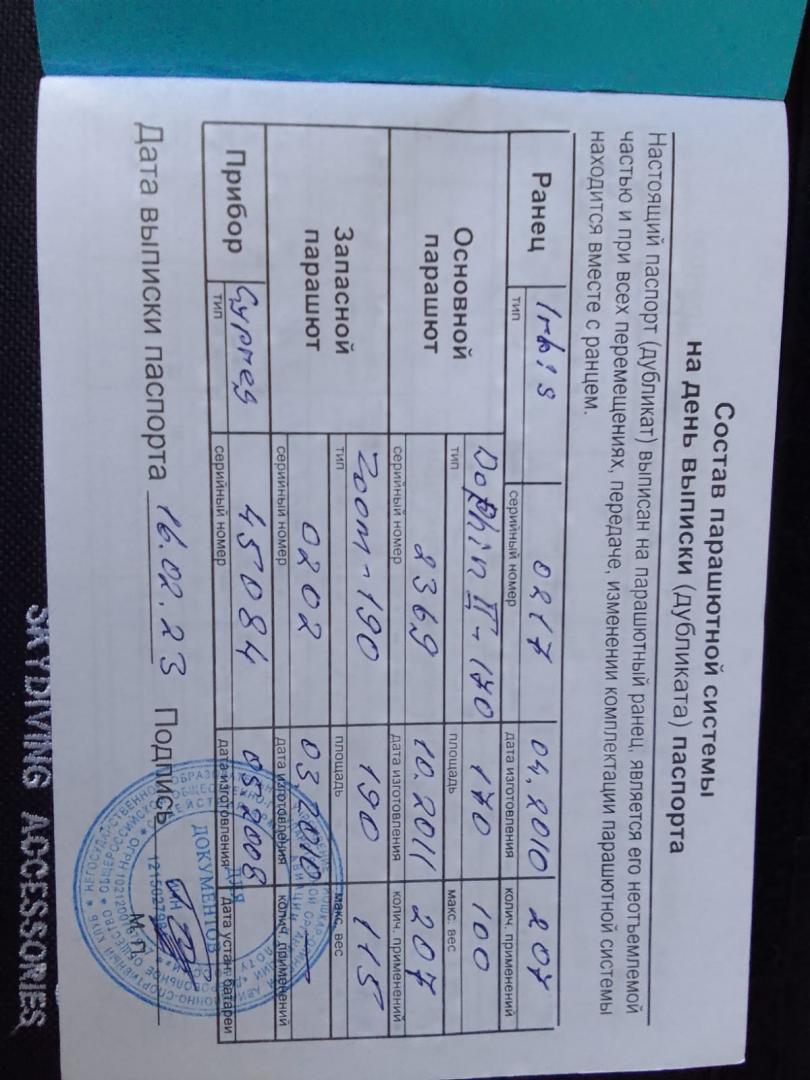 Состав парашютной системы
на день выписки (дубликата) паспорта
Настоящий паспорт (дубликат) выписан на парашютный ранец, является его неотъемлемой
частью и при всех перемещениях, передаче, изменении комплектации парашютной системы
находится вместе с ранцем.
Ранец Irbis 0217 04.2010 207
тип серийный номер дата изготовления колич. применений
Основной парашют Dolphin II-170 170 100
тип площадь макс. вес
2369 10.2011 207
серийный номер дата изготовления колич. применений
Запасной парашют Zoom-190 190 115
тип площадь макс. вес
0202 03.2010 —
серийный номер дата изготовления колич. применений
Прибор Cypres 45084 05.2008
тип серийный номер дата изготовления дата устан. батареи
Дата выписки паспорта 16.02.23 Подпись
М.П.
ДЛЯ
ДОКУМЕНТОВ
SKYDIVING ACCESSORIES